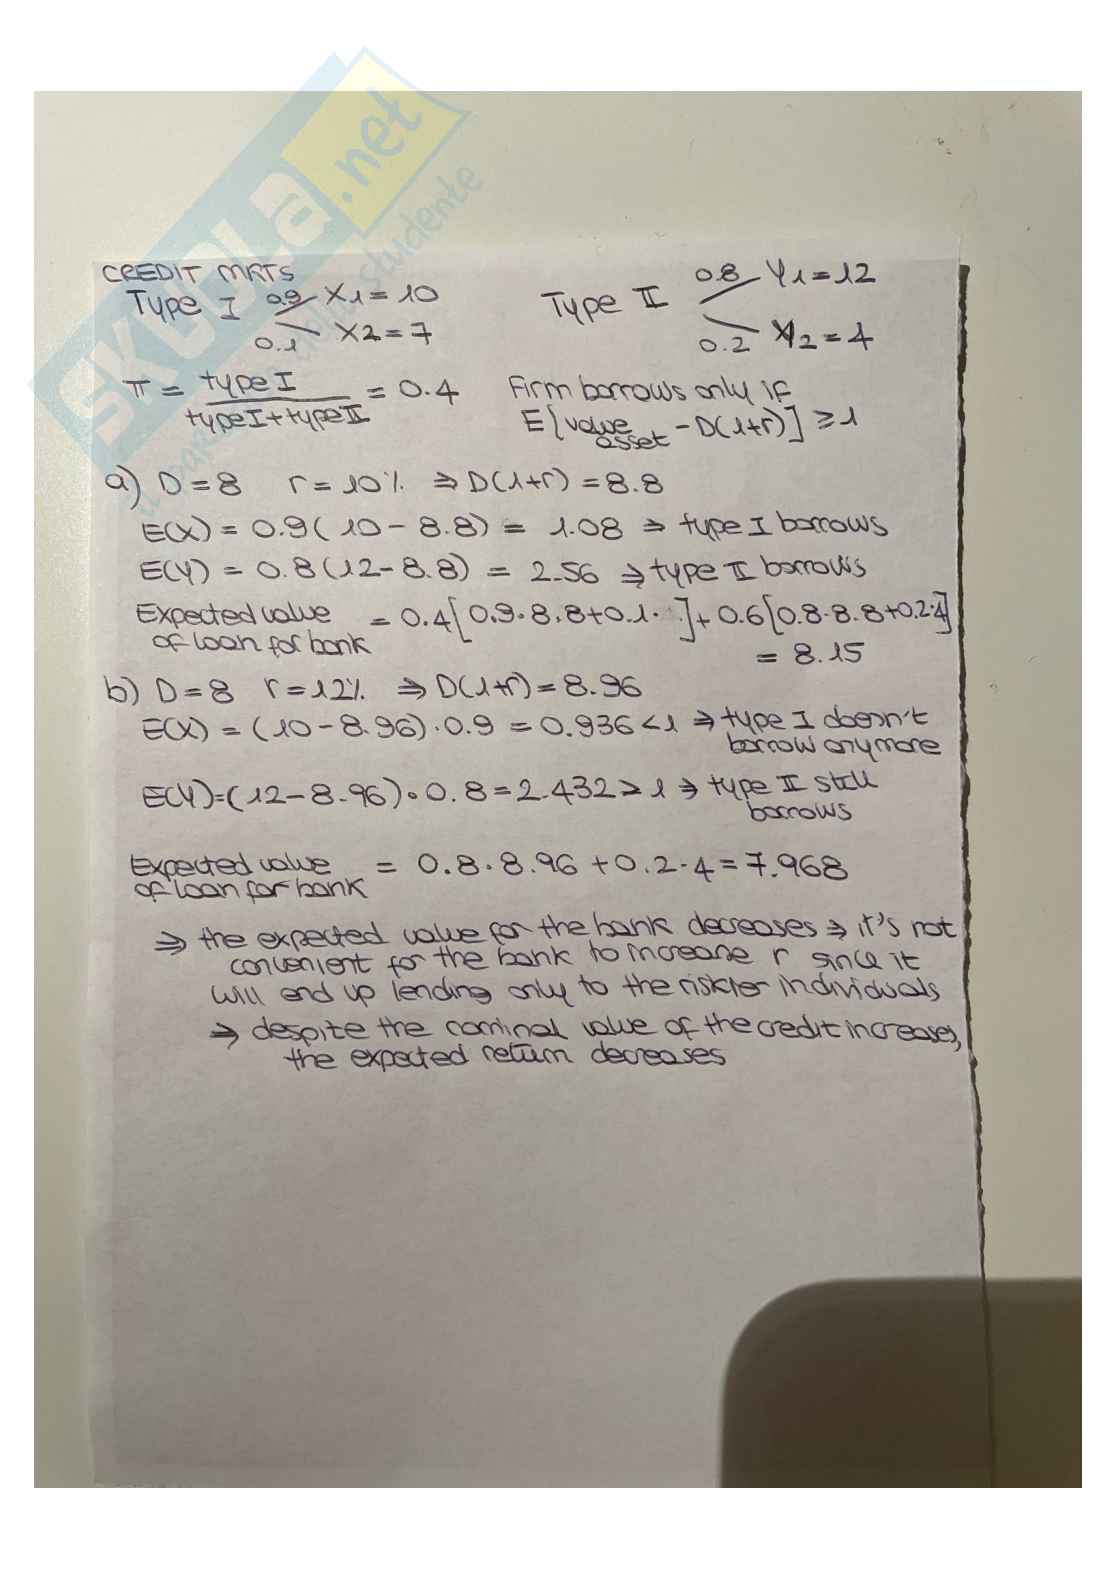 SKUOLA.net
CREDIT MKTS
Type I 0.9 X1 = 10
0.1 X2 = 7
Type II 0.8 Y1 = 12
0.2 Y2 = 4
π = type I / type I + type II = 0.4
Firm borrows only if
E[value asset - D(1+r)] ≥ 1
a) D = 8 r = 10% ⇒ D(1+r) = 8.8
E(X) = 0.9(10 - 8.8) = 1.08 ⇒ type I borrows
E(Y) = 0.8(12 - 8.8) = 2.56 ⇒ type II borrows
Expected value of loan for bank = 0.4[0.9·8.8+0.1· ]+ 0.6[0.8·8.8+0.2·4]
= 8.15
b) D = 8 r = 12% ⇒ D(1+r) = 8.96
E(X) = (10 - 8.96)·0.9 = 0.936 < 1 ⇒ type I doesn't
borrow anymore
E(Y) = (12 - 8.96)·0.8 = 2.432 > 1 ⇒ type II still
borrows
Expected value of loan for bank = 0.8·8.96 + 0.2·4 = 7.968
⇒ the expected value for the bank decreases ⇒ it's not
convenient for the bank to increase r since it
will end up lending only to the riskier individuals
⇒ despite the nominal value of the credit increases,
the expected return decreases